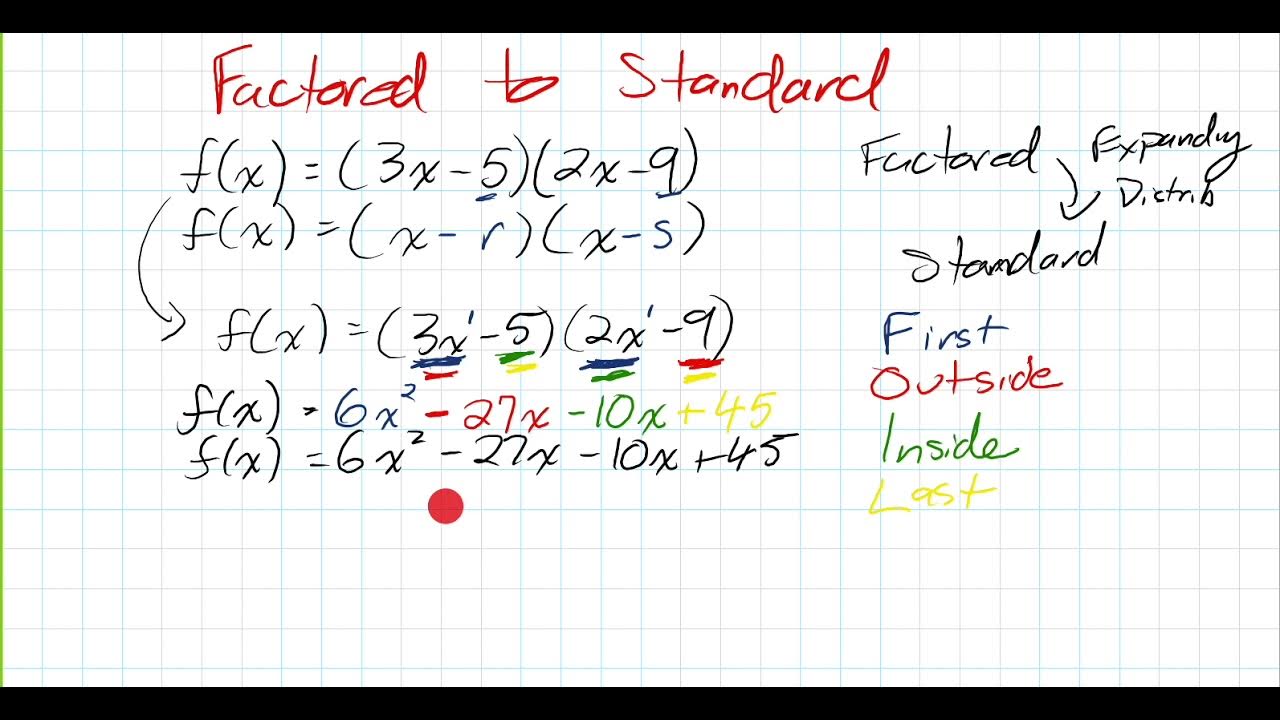 Factored to Standard
f(x) = (3x - 5)(2x - 9)
f(x) = (x - r)(x - s)
f(x) = (3x¹ - 5)(2x¹ - 9)
f(x) = 6x² - 27x - 10x + 45
f(x) = 6x² - 27x - 10x + 45
Factored
Expanding
Distrib
Standard
First
Outside
Inside
Last